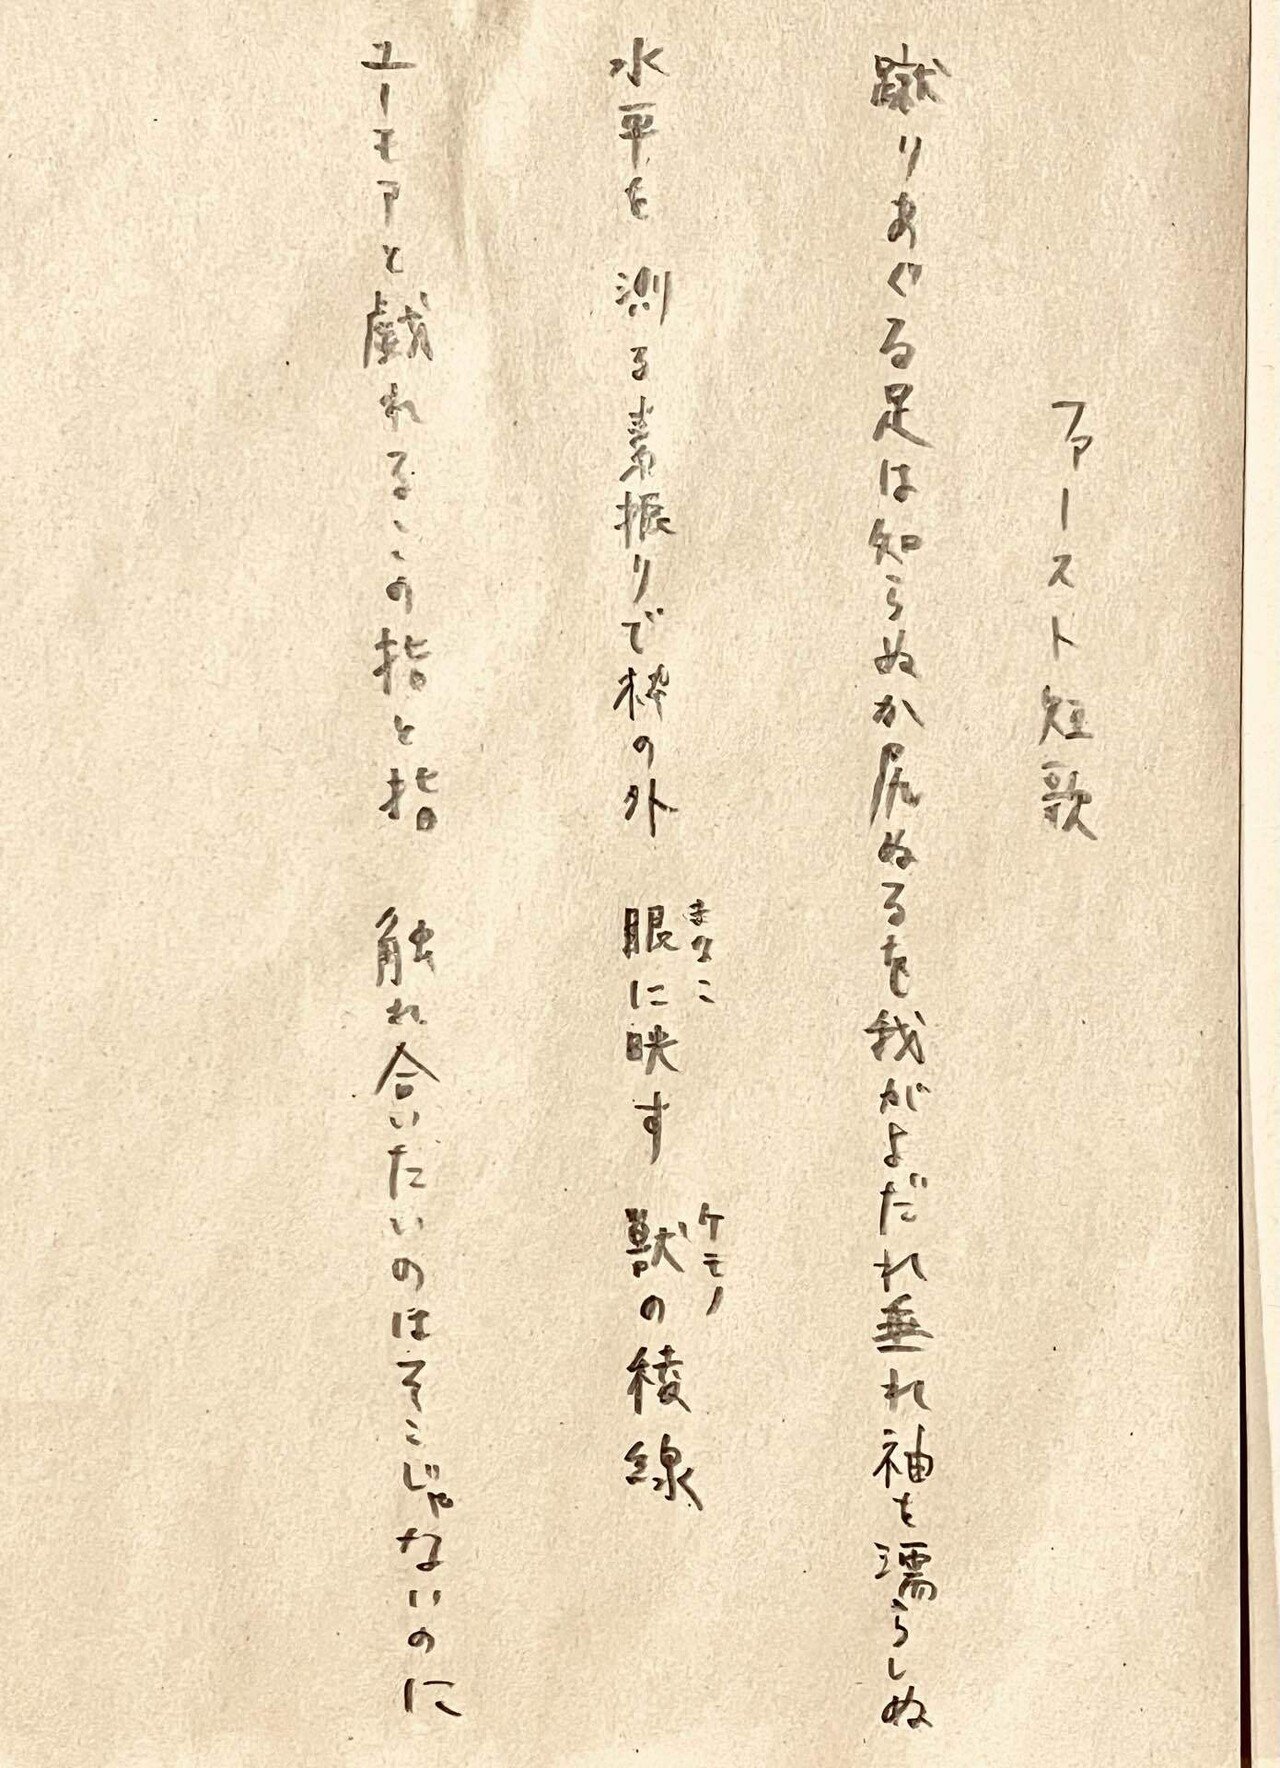 ファースト短歌
蹴りあぐる足は知らぬか尻ぬるを我がよだれ垂れ袖を濡らしぬ
水平を測る素振りで枠の外 眼に映す 獣の稜線
まなこ
ケモノ
ユーモアと戯れるこの指と指 触れ合いたいのはそこじゃないのに